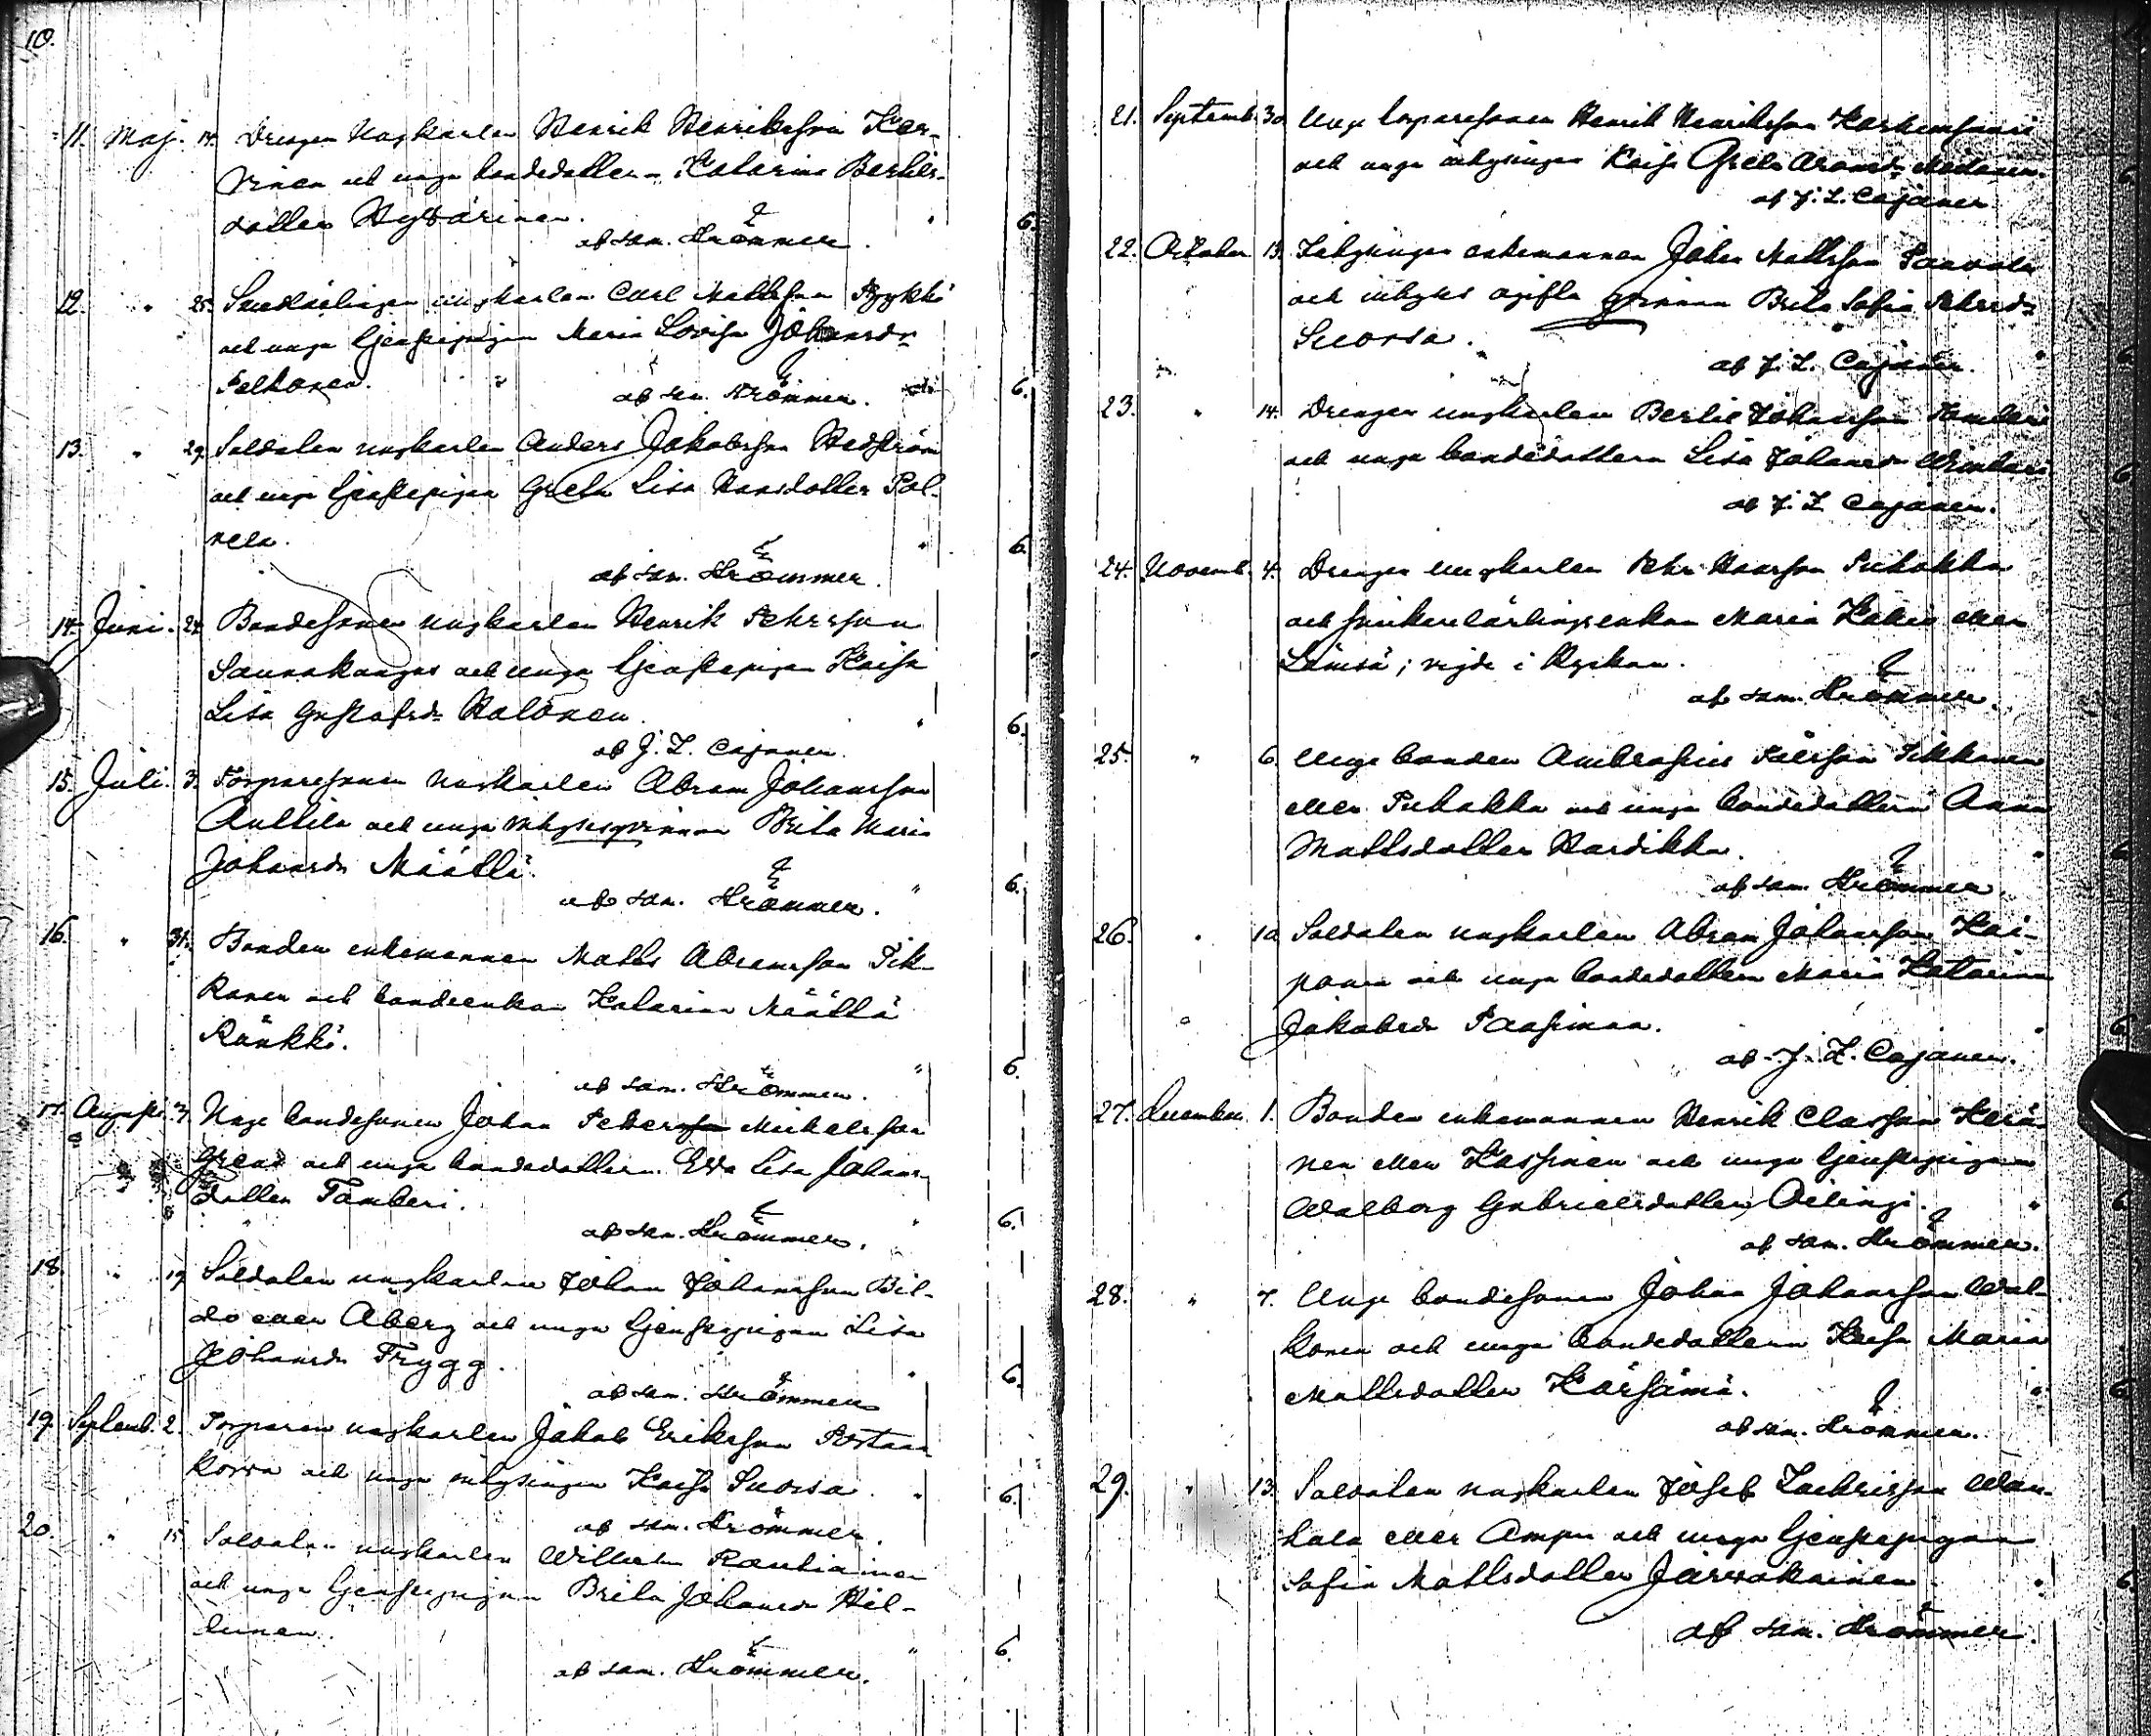 10.
11. Maj. 14. Drengen Ungkarlen Henrik Henriksson Kar-
vinen och unga bondedottern Katarina Bertils-
dotter Hyvärinen. "
af sam. Krömmer. 6.
12. " 25. ungkarlen Carl Mattsson Pyykkö
och unga tjenstepigan Maria Lovisa Johansdr
Pelkonen.
af sam. Krömmer. 6.
13. " 29. Soldaten ungkarlen Anders Jakobsson Hedström
och unga tjenstepigan Greta Lisa Hansdotter Pol-
vela. "
af sam. Krömmer. 6.
14. Juni. 24. Bondesonen ungkarlen Henrik Pehrsson
Saunakangas och unga tjenstepigan Kaisa
Lisa Gustafsdr Halonen. "
af J. L. Cajaner. 6.
15. Juli. 3. Torparesonen ungkarlen Abram Johansson
Anttila och unga inhysesqvinnan Brita Maria
Johansdr Määttä.
af sam. Krömmer. " 6.
16. " 31. Bonden enkemannen Matts Abramsson Tik-
kanen och bondeenkan Katarina Määttä
Ränkkö. "
af sam. Krömmer. 6.
17. Augusti. 3. Unge bondesonen Johan Petter Mickelsson
och unga bondedottern Eva Lisa Johans-
dotter Tamberi.
af sam. Krömmer. " 6.
18. " 19. Soldaten ungkarlen Johan Johansson Bil-
do eller Åberg och unga tjenstepigan Lisa
Johansdr Trygg. "
af sam. Krömmer 6.
19. Septemb. 2. Torparen ungkarlen Jakob Eriksson
korva och unga inhysingen Kaisa Suorsa. " 6.
af sam. Krömmer.
20. " 15. Soldaten ungkarlen Wilhelm Rautiainen
och unga tjenstepigan Brita Johansdr Hil-
tunen. "
af sam. Krömmer. 6.
21. Septemb. 30. Unge torparesonen Henrik Henriksson
och unga inhysingen Kaisa Greta 6.
af J. L. Cajaner.
22. October 13. Inhysingen enkemannen Johan Mattsson Paavola
och inhyses ogifta qvinnan Brita Sofia Pehrsdr
Suorsa. "
af J. L. Cajaner. 6.
23. " 14. Drengen ungkarlen Bertil Johansson Tamberi
och unga bondedottern Lisa Johansdr 6.
af J. L. Cajaner.
24. Novemb. 4. Drengen ungkarlen Pehr Hansson Puhakka
och snickerelärlingsenkan Maria eller
Lämsä; vigde i Kyrkan.
af sam. Krömmer.
25. " 6. Unge bonden Ambrosius Påulsson Tikkanen
eller Puhakka och unga bondedottern Anna
Mattsdotter Hardikka. " 6.
af sam. Krömmer.
26. " 10. Soldaten ungkarlen Abram Johansson
och unga bondedottern Maria Katarina
Jakobsdr Paasimaa. " 6.
af J. L. Cajaner.
27. December. 1. Bonden enkemannen Henrik Classon Kerä-
nen eller Kassinen och unga tjenstepigan
Walborg Gabrielsdotter Oilingi. " 6.
af sam. Krömmer.
28. " 7. Unge bondesonen Johan Johansson Wal-
konen och unga bondedottern Kaisa Maria
Mattsdotter Kärsämä. " 6.
af sam. Krömmer.
29. " 13. Soldaten ungkarlen Josef Zachrisson Wan-
hala eller Ampu och unga tjenstepigan
Sofia Mattsdotter Järvakainen. " 6.
af sam. Krömmer.